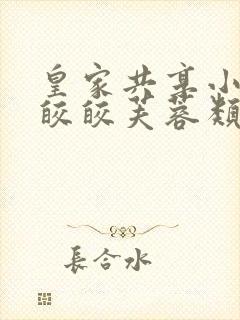 皇家共享小
皎皎芙蓉類
長合水